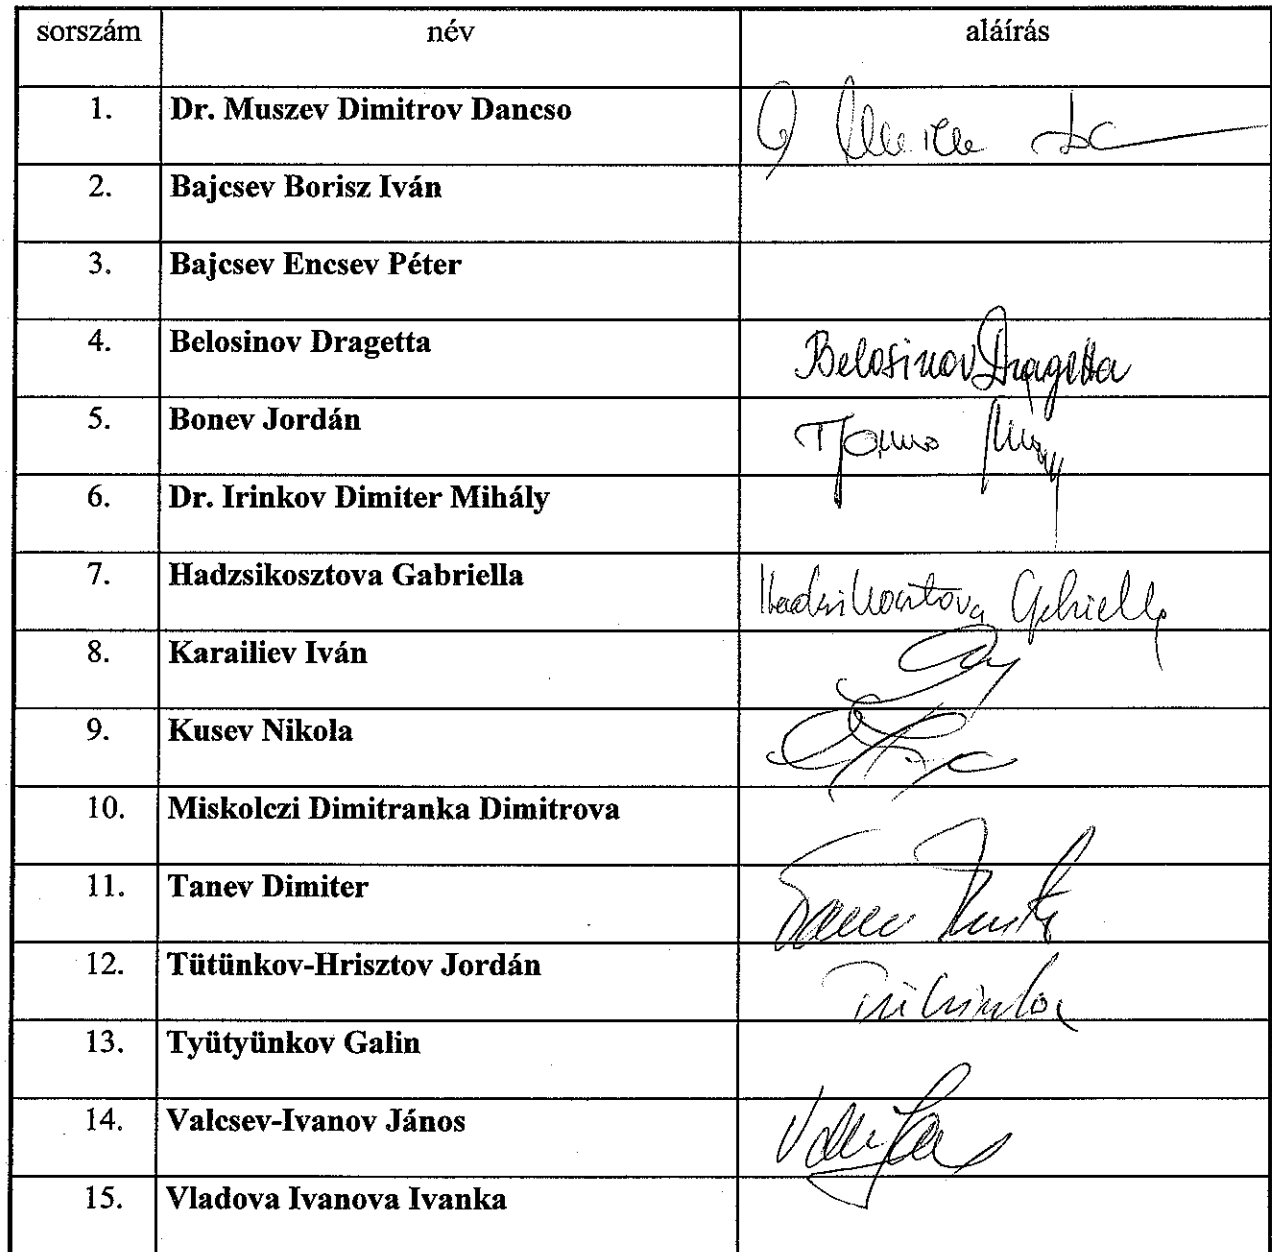 sorszám név aláírás
1. Dr. Muszev Dimitrov Dancso
2. Bajcsev Borisz Iván
3. Bajcsev Encsev Péter
4. Belosinov Dragetta Belosinov Dragetta
5. Bonev Jordán
6. Dr. Irinkov Dimiter Mihály
7. Hadzsikosztova Gabriella
8. Karailiev Iván
9. Kusev Nikola
10. Miskolczi Dimitranka Dimitrova
11. Tanev Dimiter
12. Tütünkov-Hrisztov Jordán
13. Tyütyünkov Galin
14. Valcsev-Ivanov János
15. Vladova Ivanova Ivanka